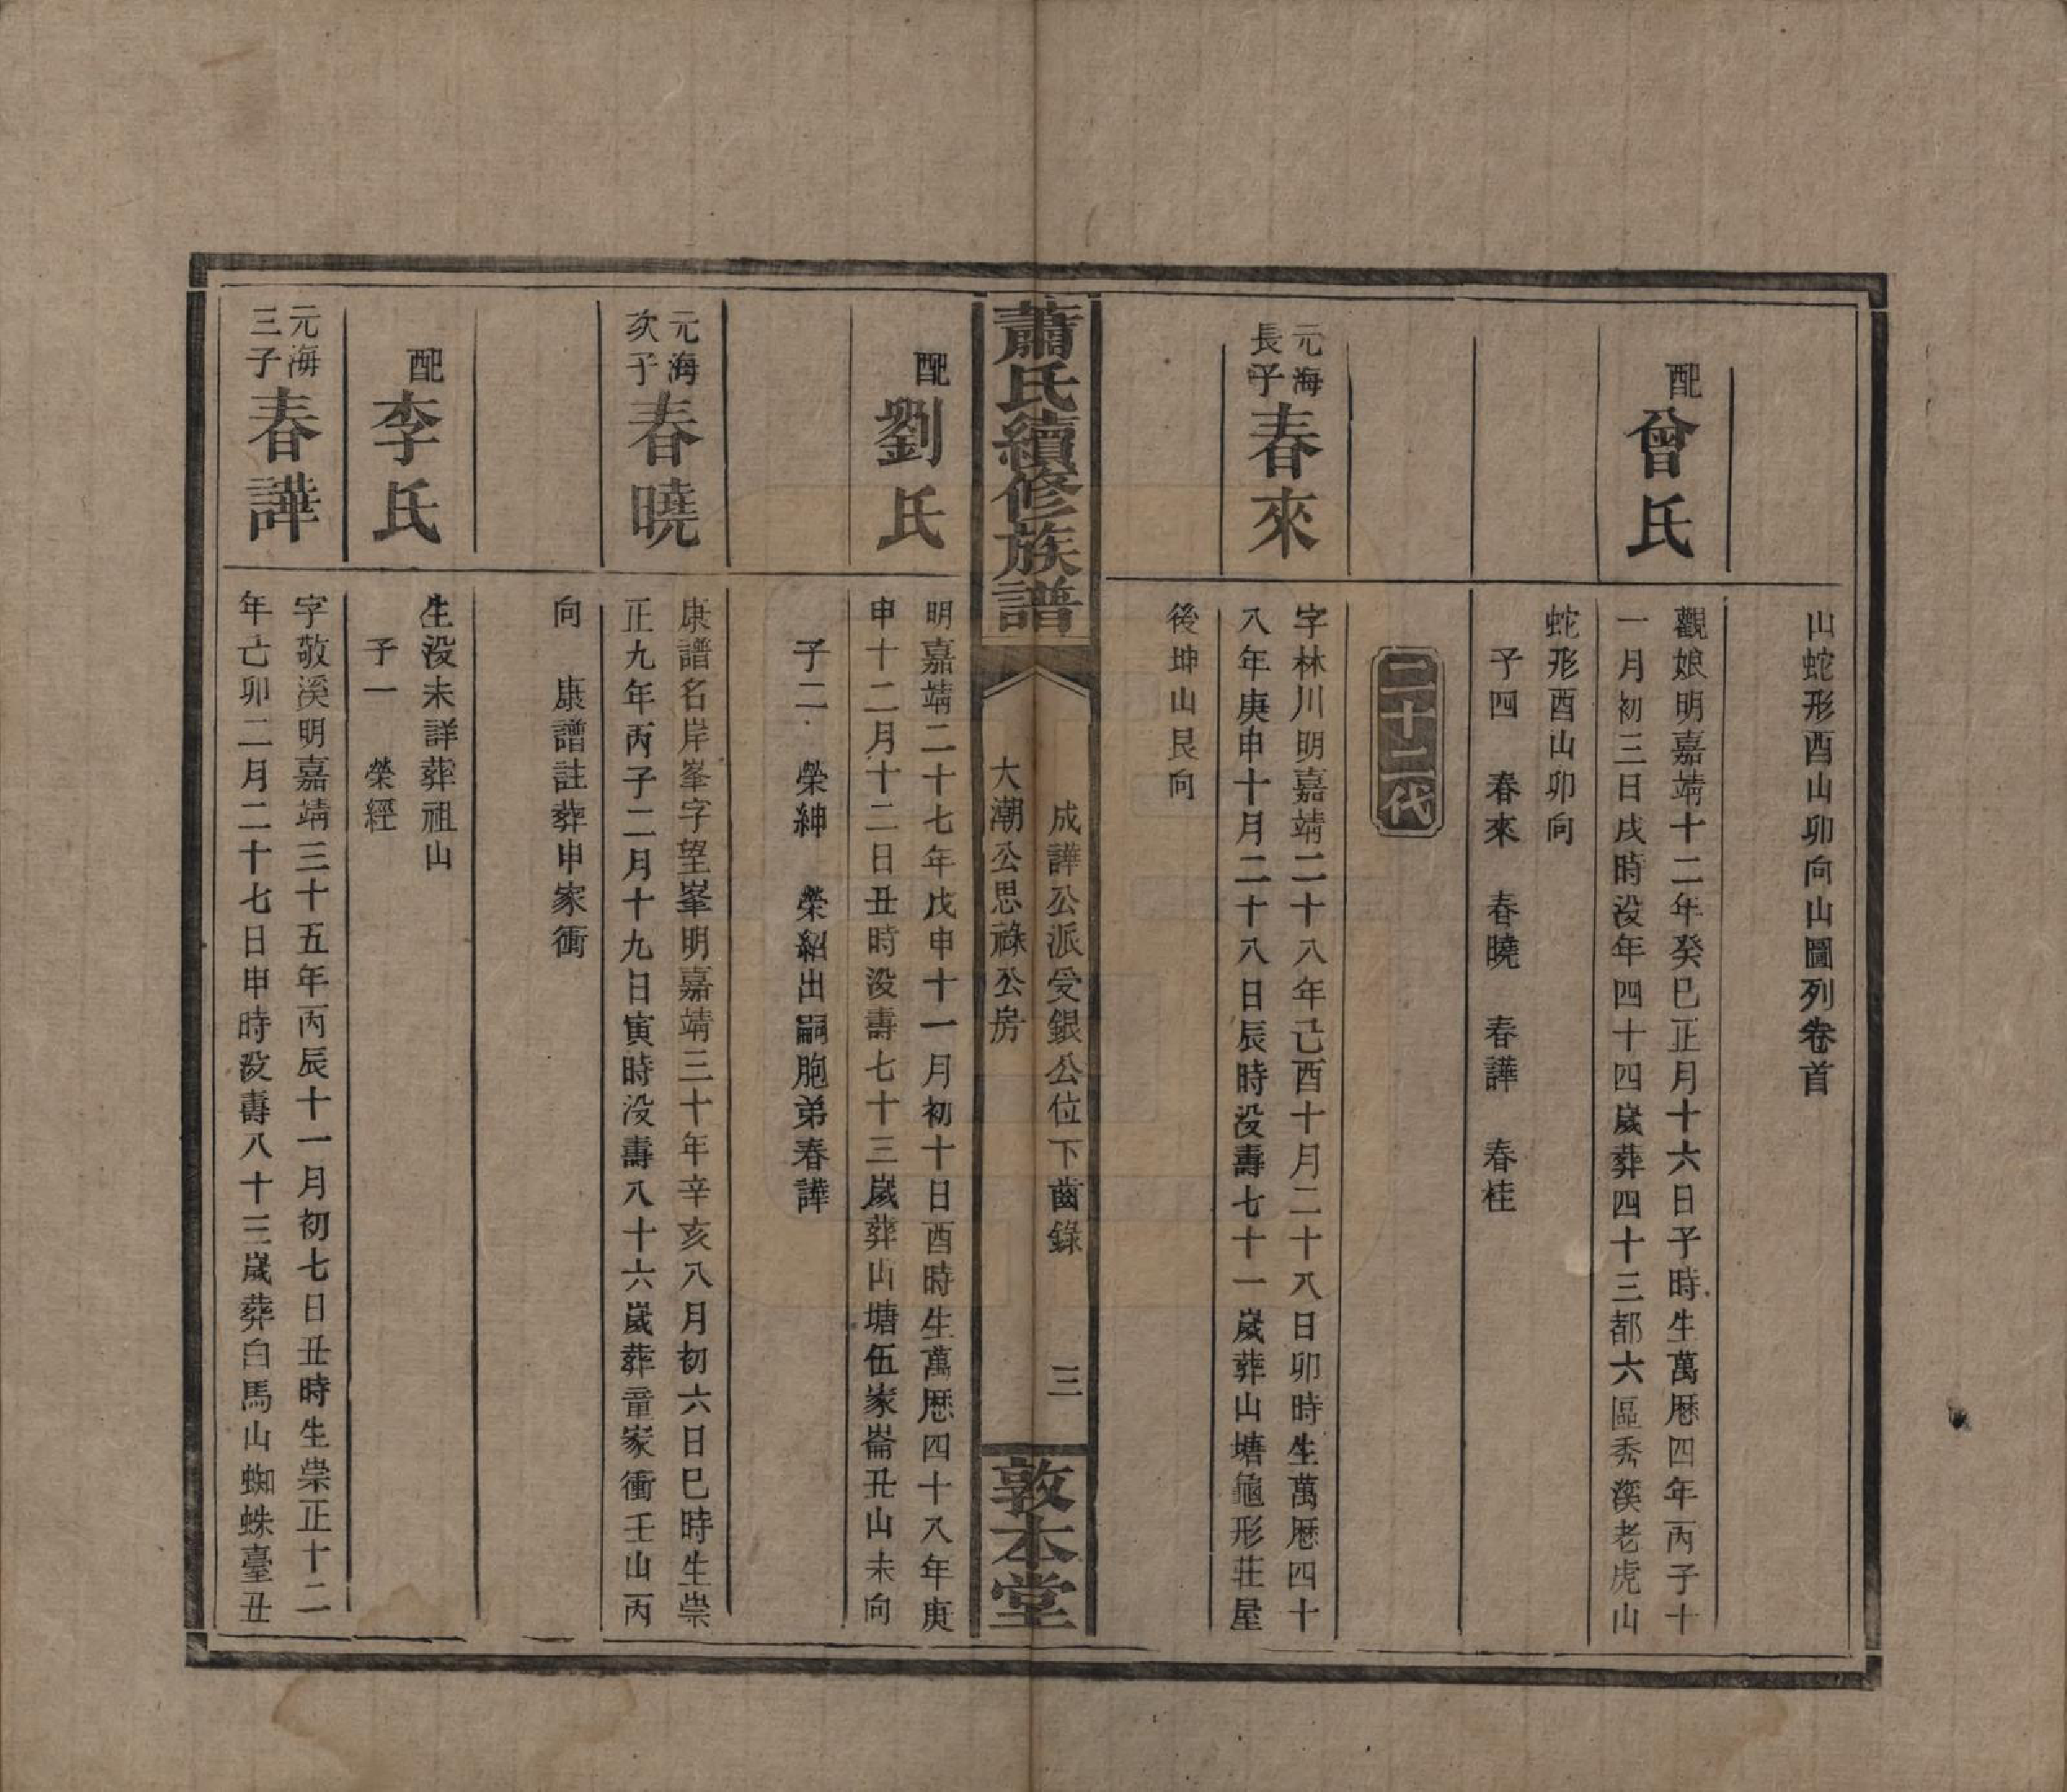 山蛇形酉山卯向山圖列卷首
配曾氏
觀娘明嘉靖十二年癸巳正月十六日子時生萬厯四年丙子十
一月初三日戌時没年四十四歲葬四十三都六區秀溪老虎山
蛇形酉山卯向
子四　春來　春曉　春譁　春桂
二十二代
元海
長子
春來
字林川明嘉靖二十八年己酉十月二十八日卯時生萬厯四十
八年庚申十月二十八日辰時没壽七十一歲葬山塘龜形莊屋
後坤山艮向
蕭氏續修族譜
成譁公派受銀公位下齒錄
大潮公思祿公房
三
敦本堂
配劉氏
明嘉靖二十七年戊申十一月初十日酉時生萬厯四十八年庚
申十二月十二日丑時没壽七十三歲葬山塘伍家崙丑山未向
子二　榮紳　榮紹出嗣胞弟春譁
元海
次子
春曉
康譜名岸峯字望峯明嘉靖三十年辛亥八月初六日巳時生崇
正九年丙子二月十九日寅時没壽八十六歲葬童家衝壬山丙
向　康譜註葬申家衝
配李氏
生没未詳葬祖山
子一　榮經
元海
三子
春譁
字敬溪明嘉靖三十五年丙辰十一月初七日丑時生崇正十二
年己卯二月二十七日申時没壽八十三歲葬白馬山蜘蛛臺丑